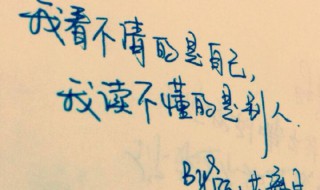 我看不清的是自己,
我读不懂的是别人.
By